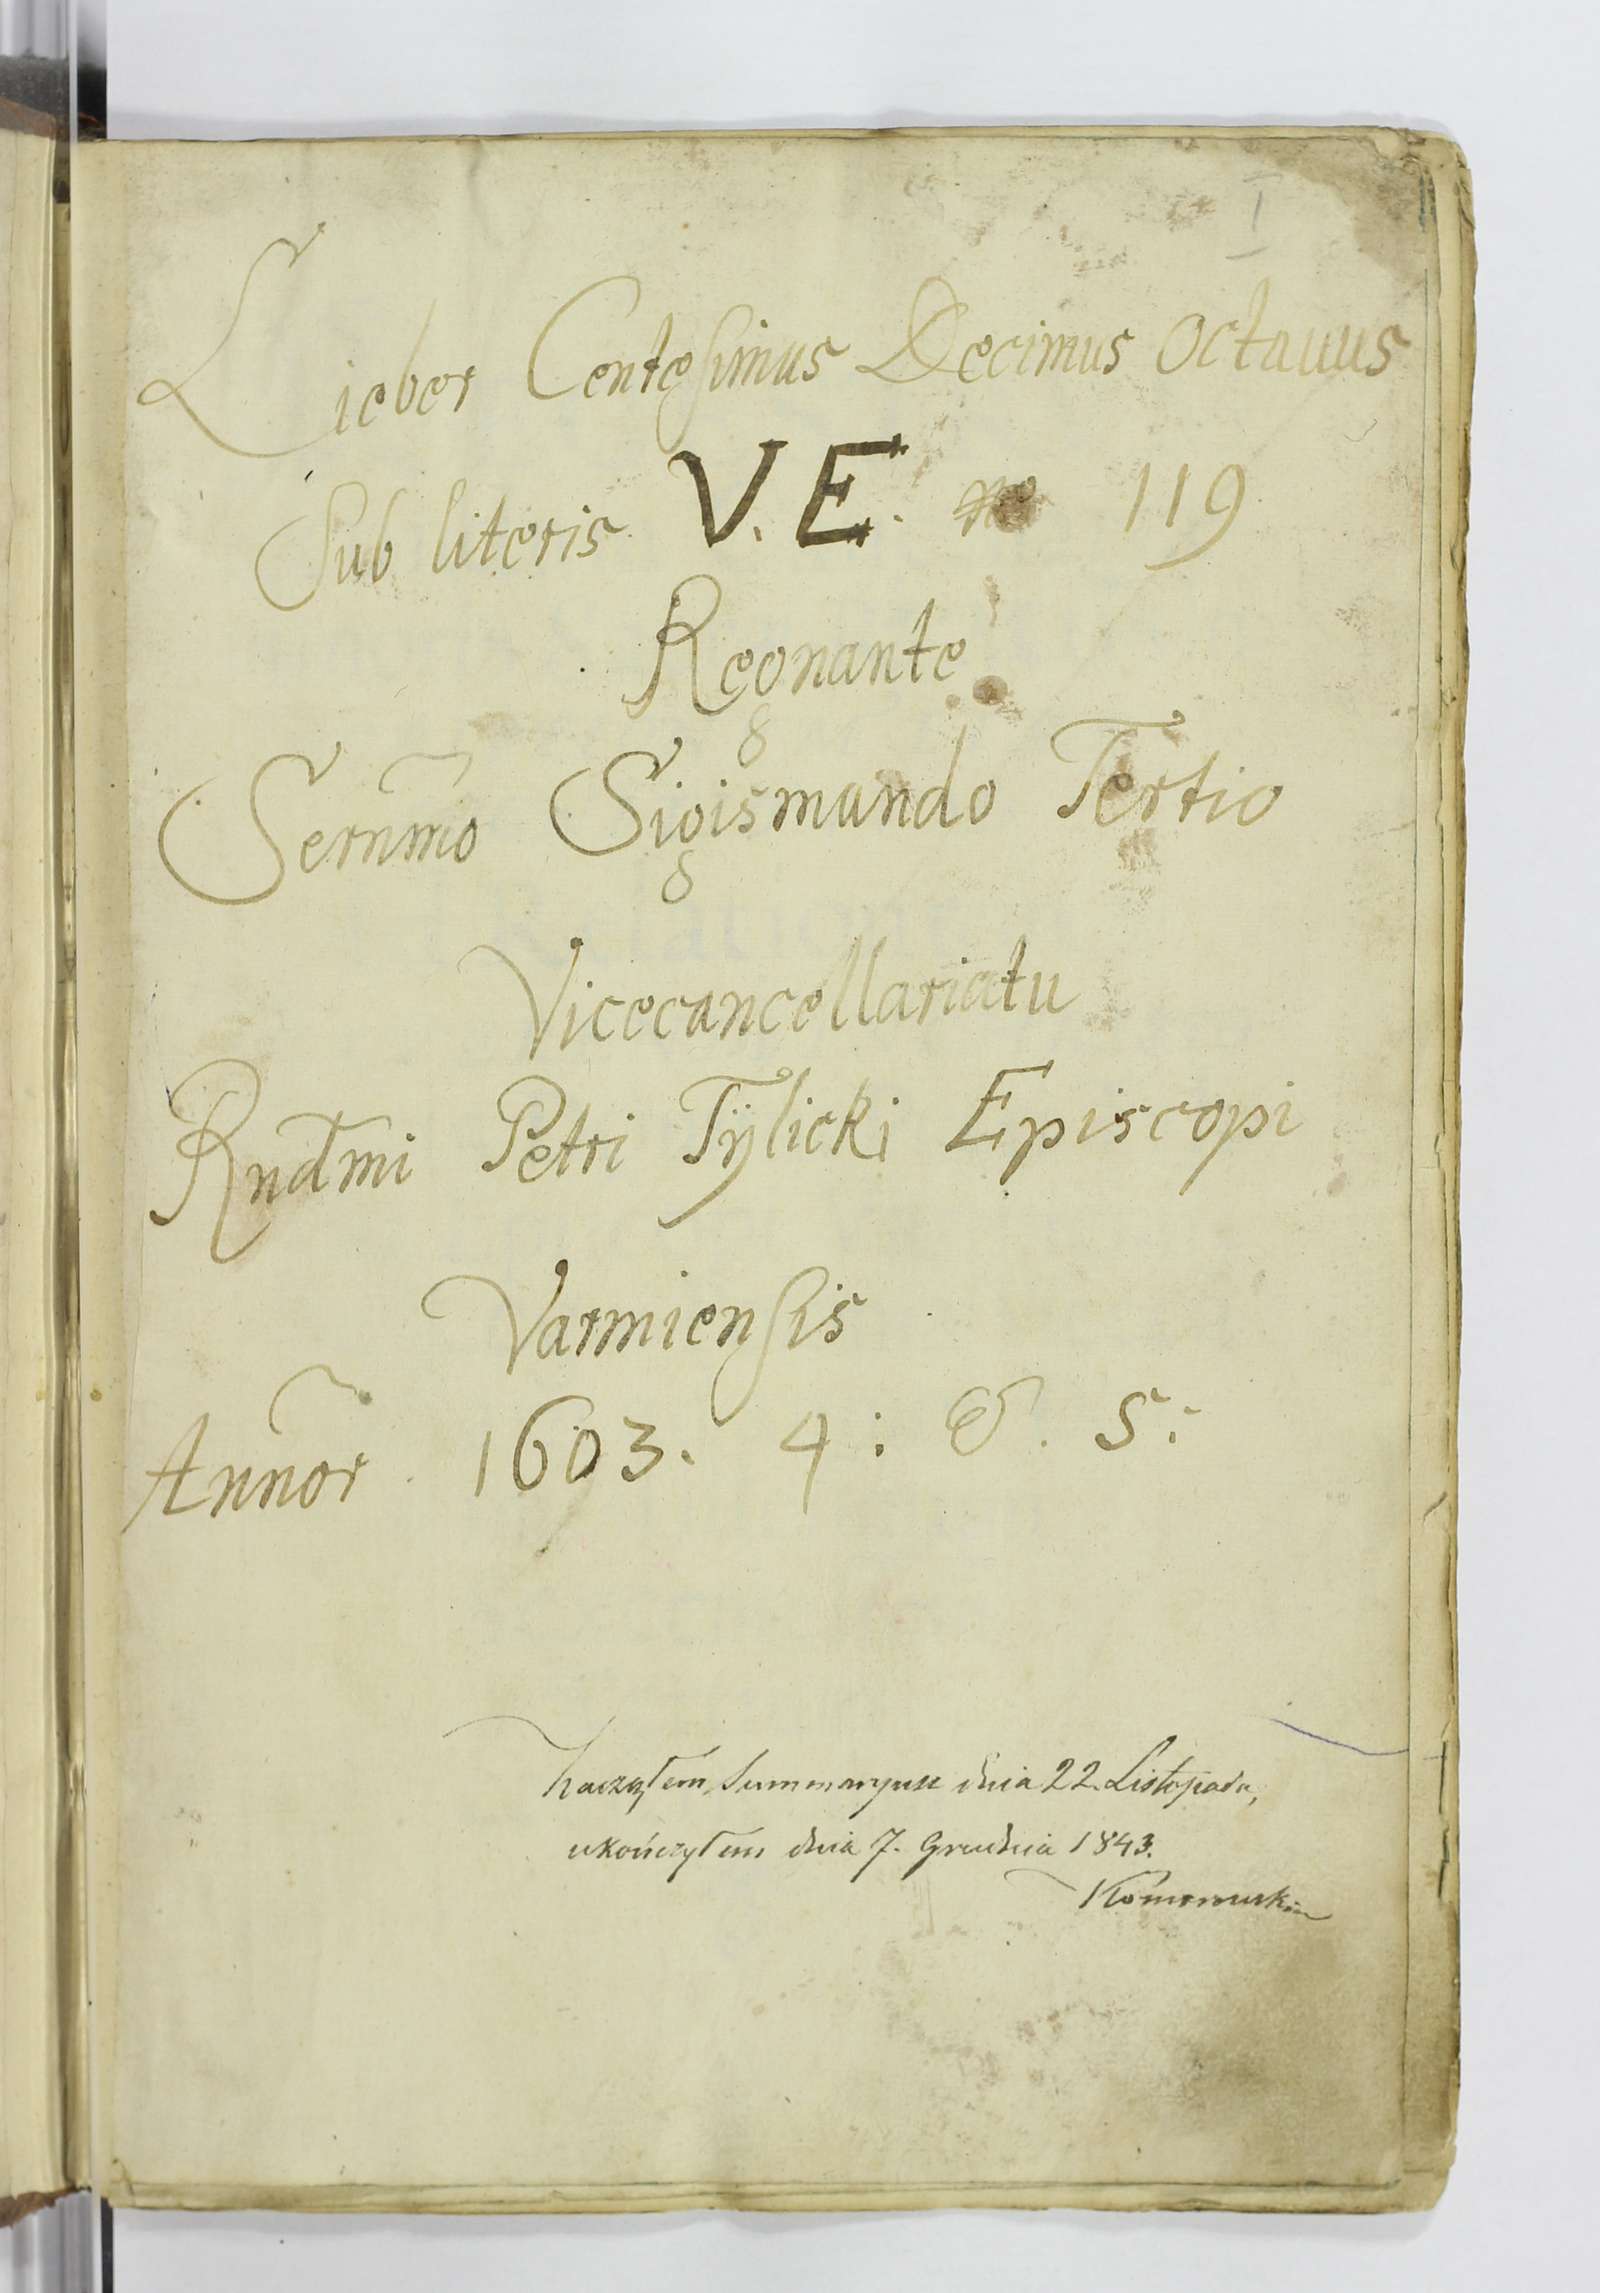 I
Lieber Centesimus Decimus Octauus
Sub literis V.E. no 119
Regnante
Sernmo Sigismundo Tertio
Vicecancellariatu
Rndmi Petri Tÿlicki Episcopi
Varmiensis
Annor 1603. 4: & 5:
Zacząłem Summaryusz dnia 22 Listopada,
ukończyłem dnia 7. Grudnia 1843.